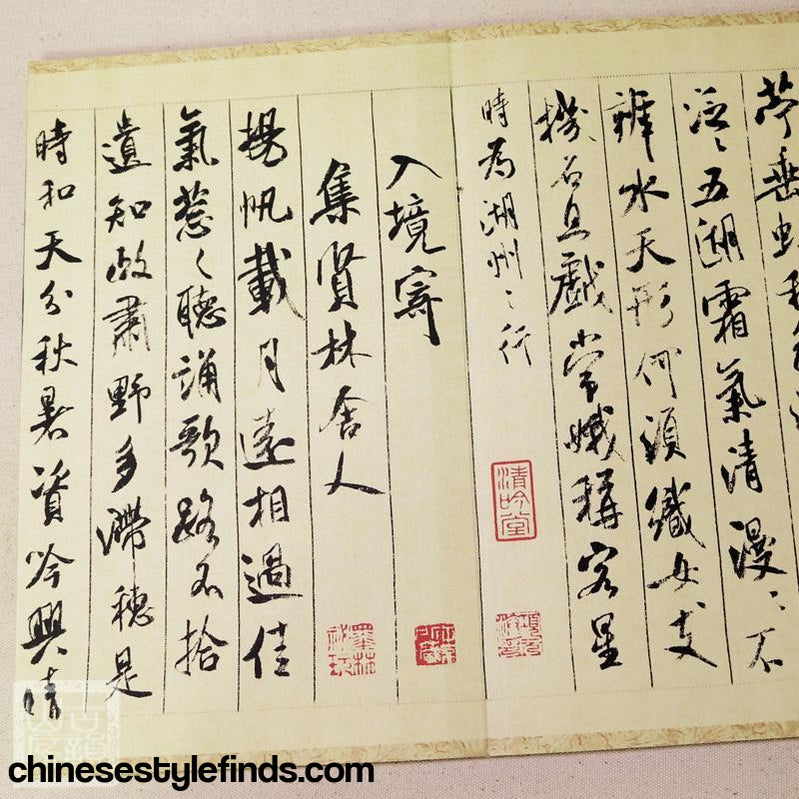 苧垂虹秋色
泛〻五湖霜氣清漫〻不
辨水天形何須織女支
機石且戲常娥稱客星
時為湖州之行
清吟堂
入境寄
集賢林舍人
揚帆載月遠相過佳
氣蔥〻聽誦歌路不拾
遺知政肅野多滯穗是
時和天分秋暑資吟興晴
chinesestylefinds.com